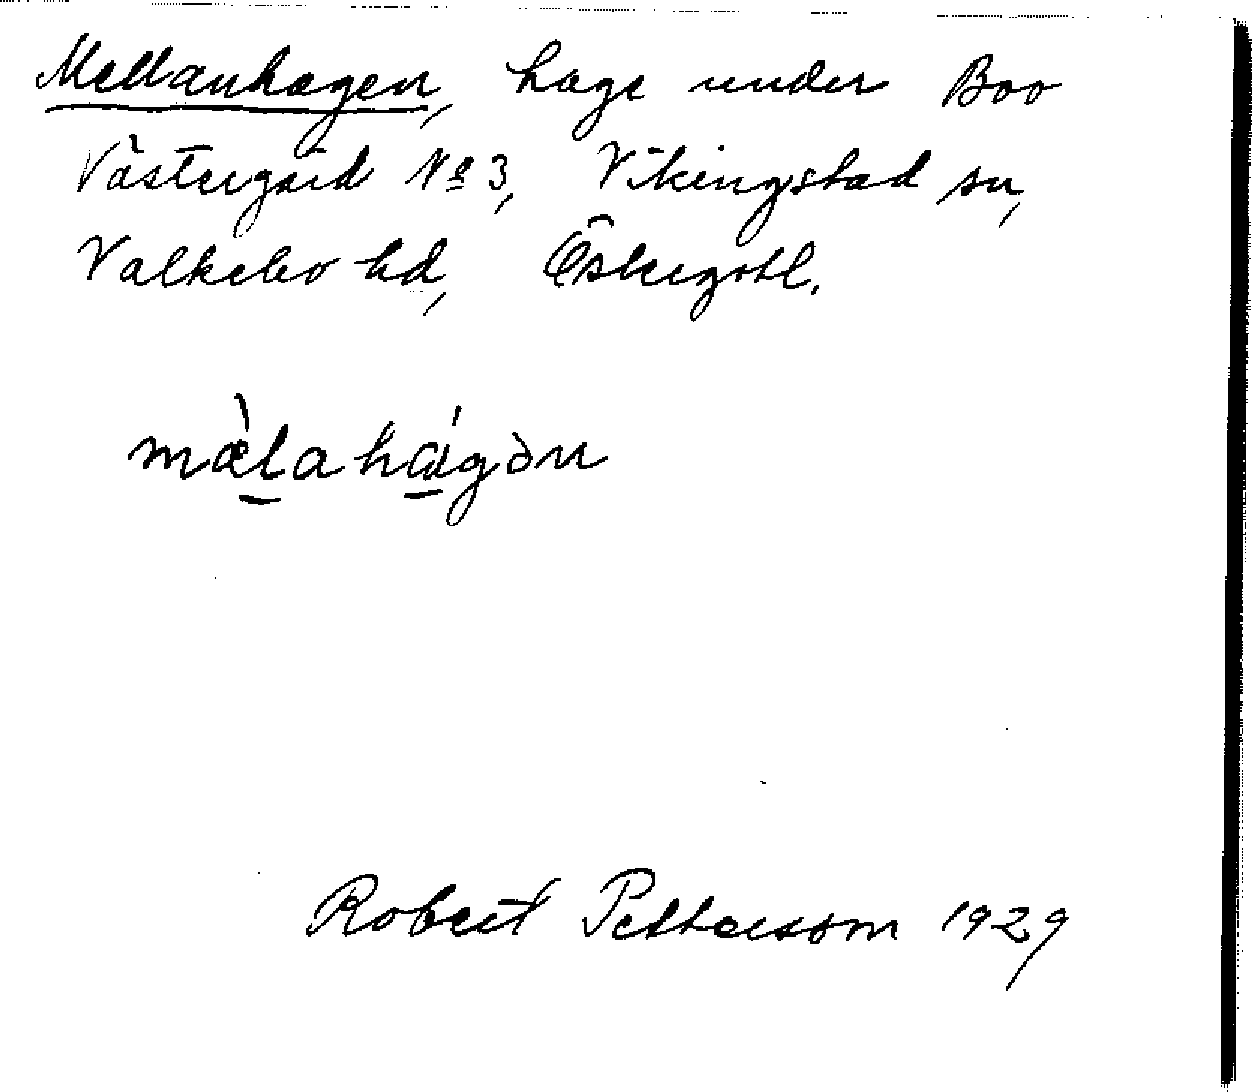 Mellanhagen, hage under Boo
Västergård No 3, Vikingstad sn,
Valkebo hd, Östergötl.
mæ̀lahágən
Robert Pettersson 1929